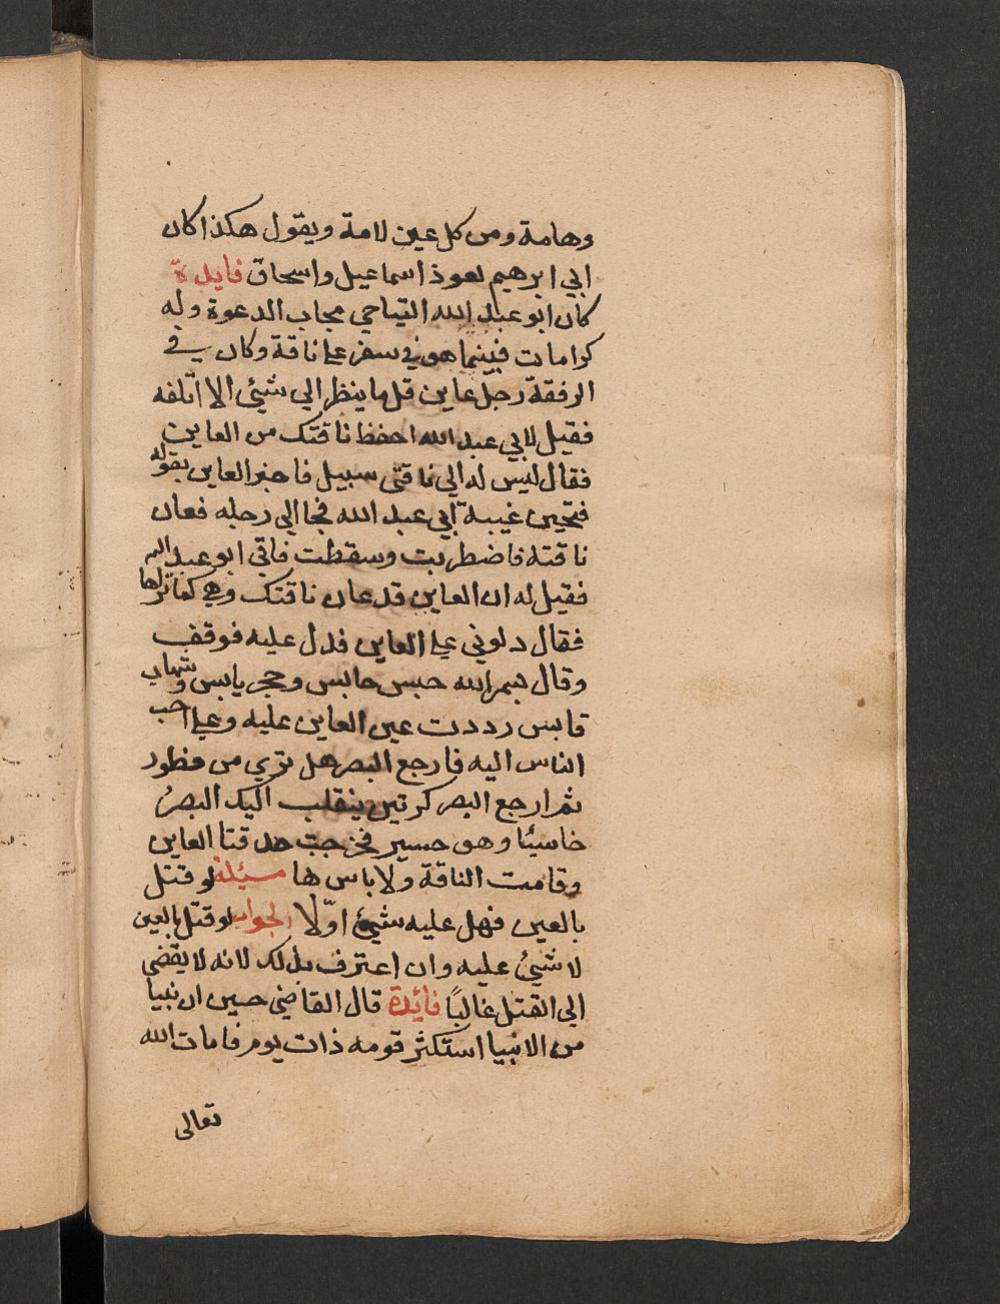 وهامة ومن كل عين لامة ويقول هكذا كان
ابي ابرهيم يعوذ اسماعيل واسحاق فايدة
كان ابو عبد الله التياحي مجاب الدعوة وله
كرامات فبينما هو في سفر على ناقة وكان في
الرفقة رجل عاين قل ما ينظر الي شيئ الا اتلفه
فقيل لابي عبد الله احفظ ناقتك من العاين
فقال ليس له الي ناقتى سبيل فاخبر العاين بقوله
فتحين غيبة ابي عبد الله فجا الي رحله فعان
ناقته فاضطربت وسقطت فاتي ابو عبد الله
فقيل له ان العاين قد عان ناقتك وهي كما تراها
فقال دلوني على العاين فدل عليه فوقف
وقال بسم الله حبس حابس وحجر يابس وشهاب
قابس رددت عين العاين عليه وعلى احب
الناس اليه فارجع البصر هل تري من فطور
ثم ارجع البصر كرتين ينقلب اليك البصرُ
خاسيئا وهو حسير فخرجت حدقتا العاين
وقامت الناقة ولا باس ها مسيئلة لو قتل
بالعين فهل عليه شيئ اوّلا الجواب لو قتل بالعين
لا شيئ عليه وان اعترف بذلك لانه لا يفضي
الى القتل غالبًا فائدة قال القاضي حسين ان نبيا
من الانبيا استكثر قومه ذات يوم فامات الله
تعالى